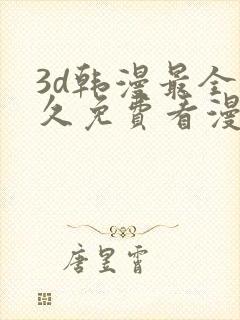 3d韩漫最全
久免费看漫
唐昱霄